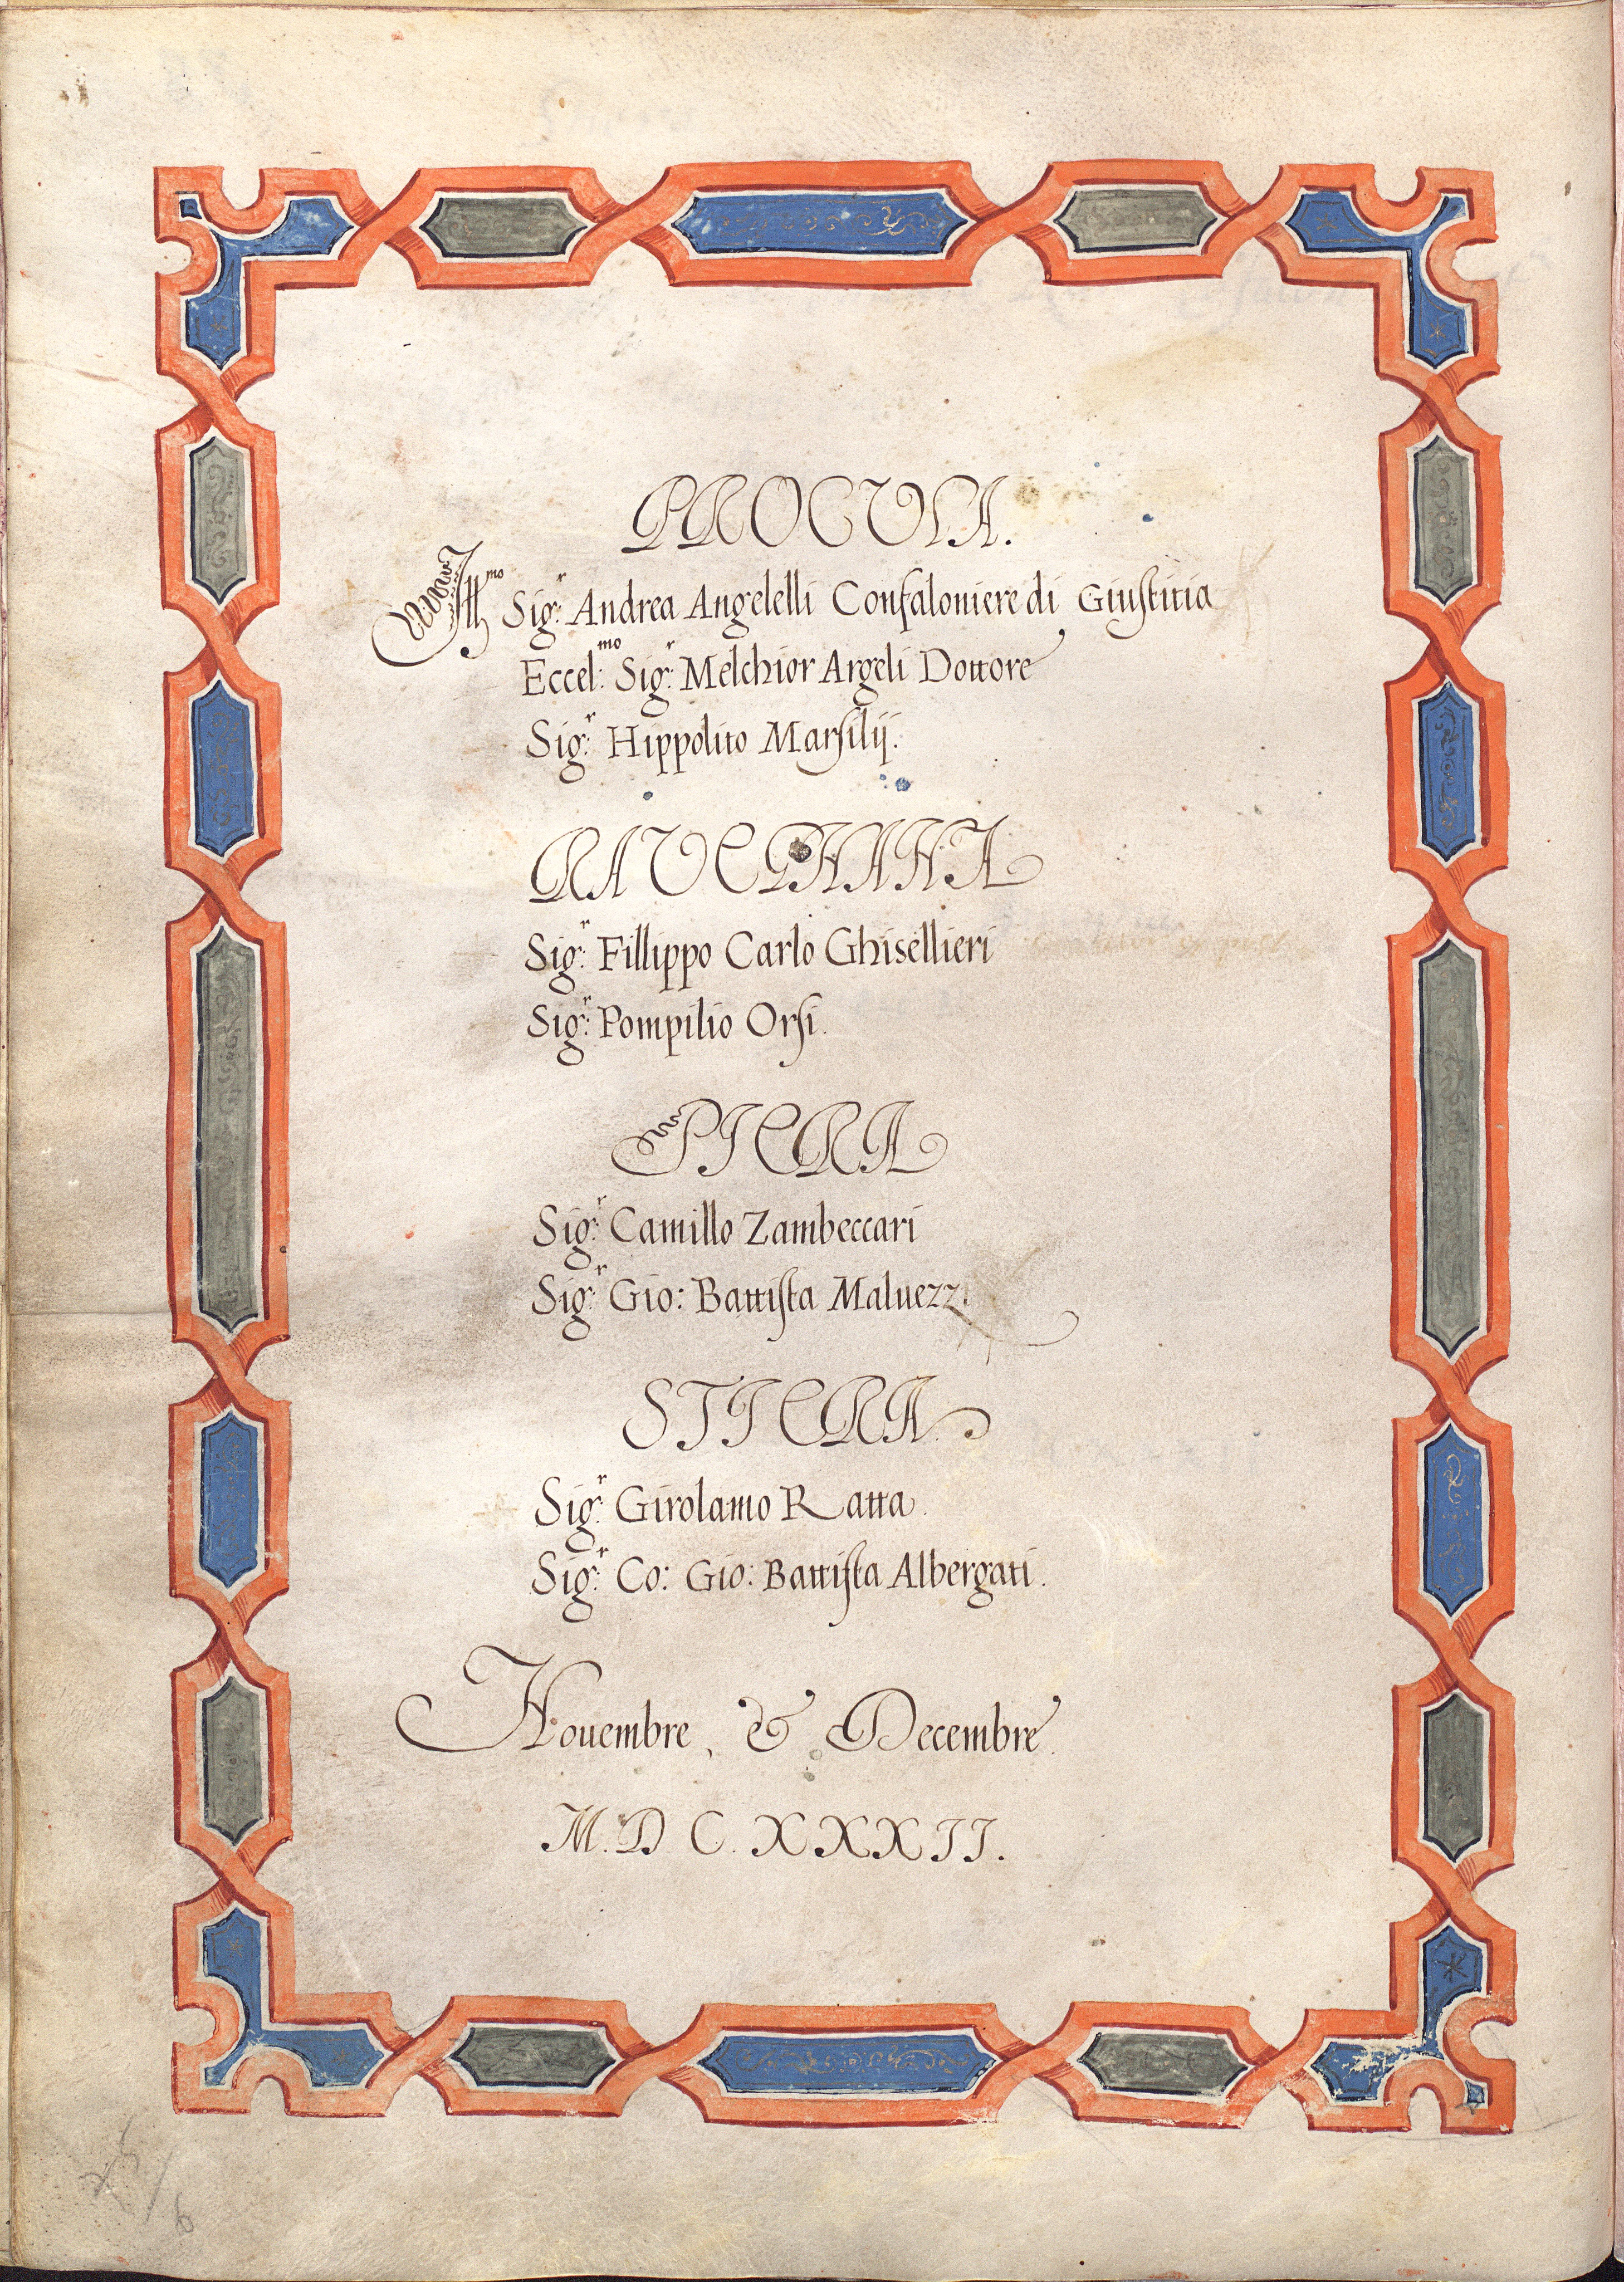 PROCVLA.
Ill:mo Sig:r Andrea Angelelli Confaloniere di Giuſtitia
Eccel:mo Sig:r Melchior Argeli Dottore
Sig:r Hippolito Marſilij.
RAVEGNANA
Sig:r Fillippo Carlo Ghisellieri
Sig:r Pompilio Orſi.
PIERA
Sig:r Camillo Zambeccari
Sig:r Gio: Battiſta Maluezzi
STIERA.
Sig:r Girolamo Ratta.
Sig:r Co: Gio: Battiſta Albergati.
Nouembre, & Decembre.
M. D C. XXXII.
6